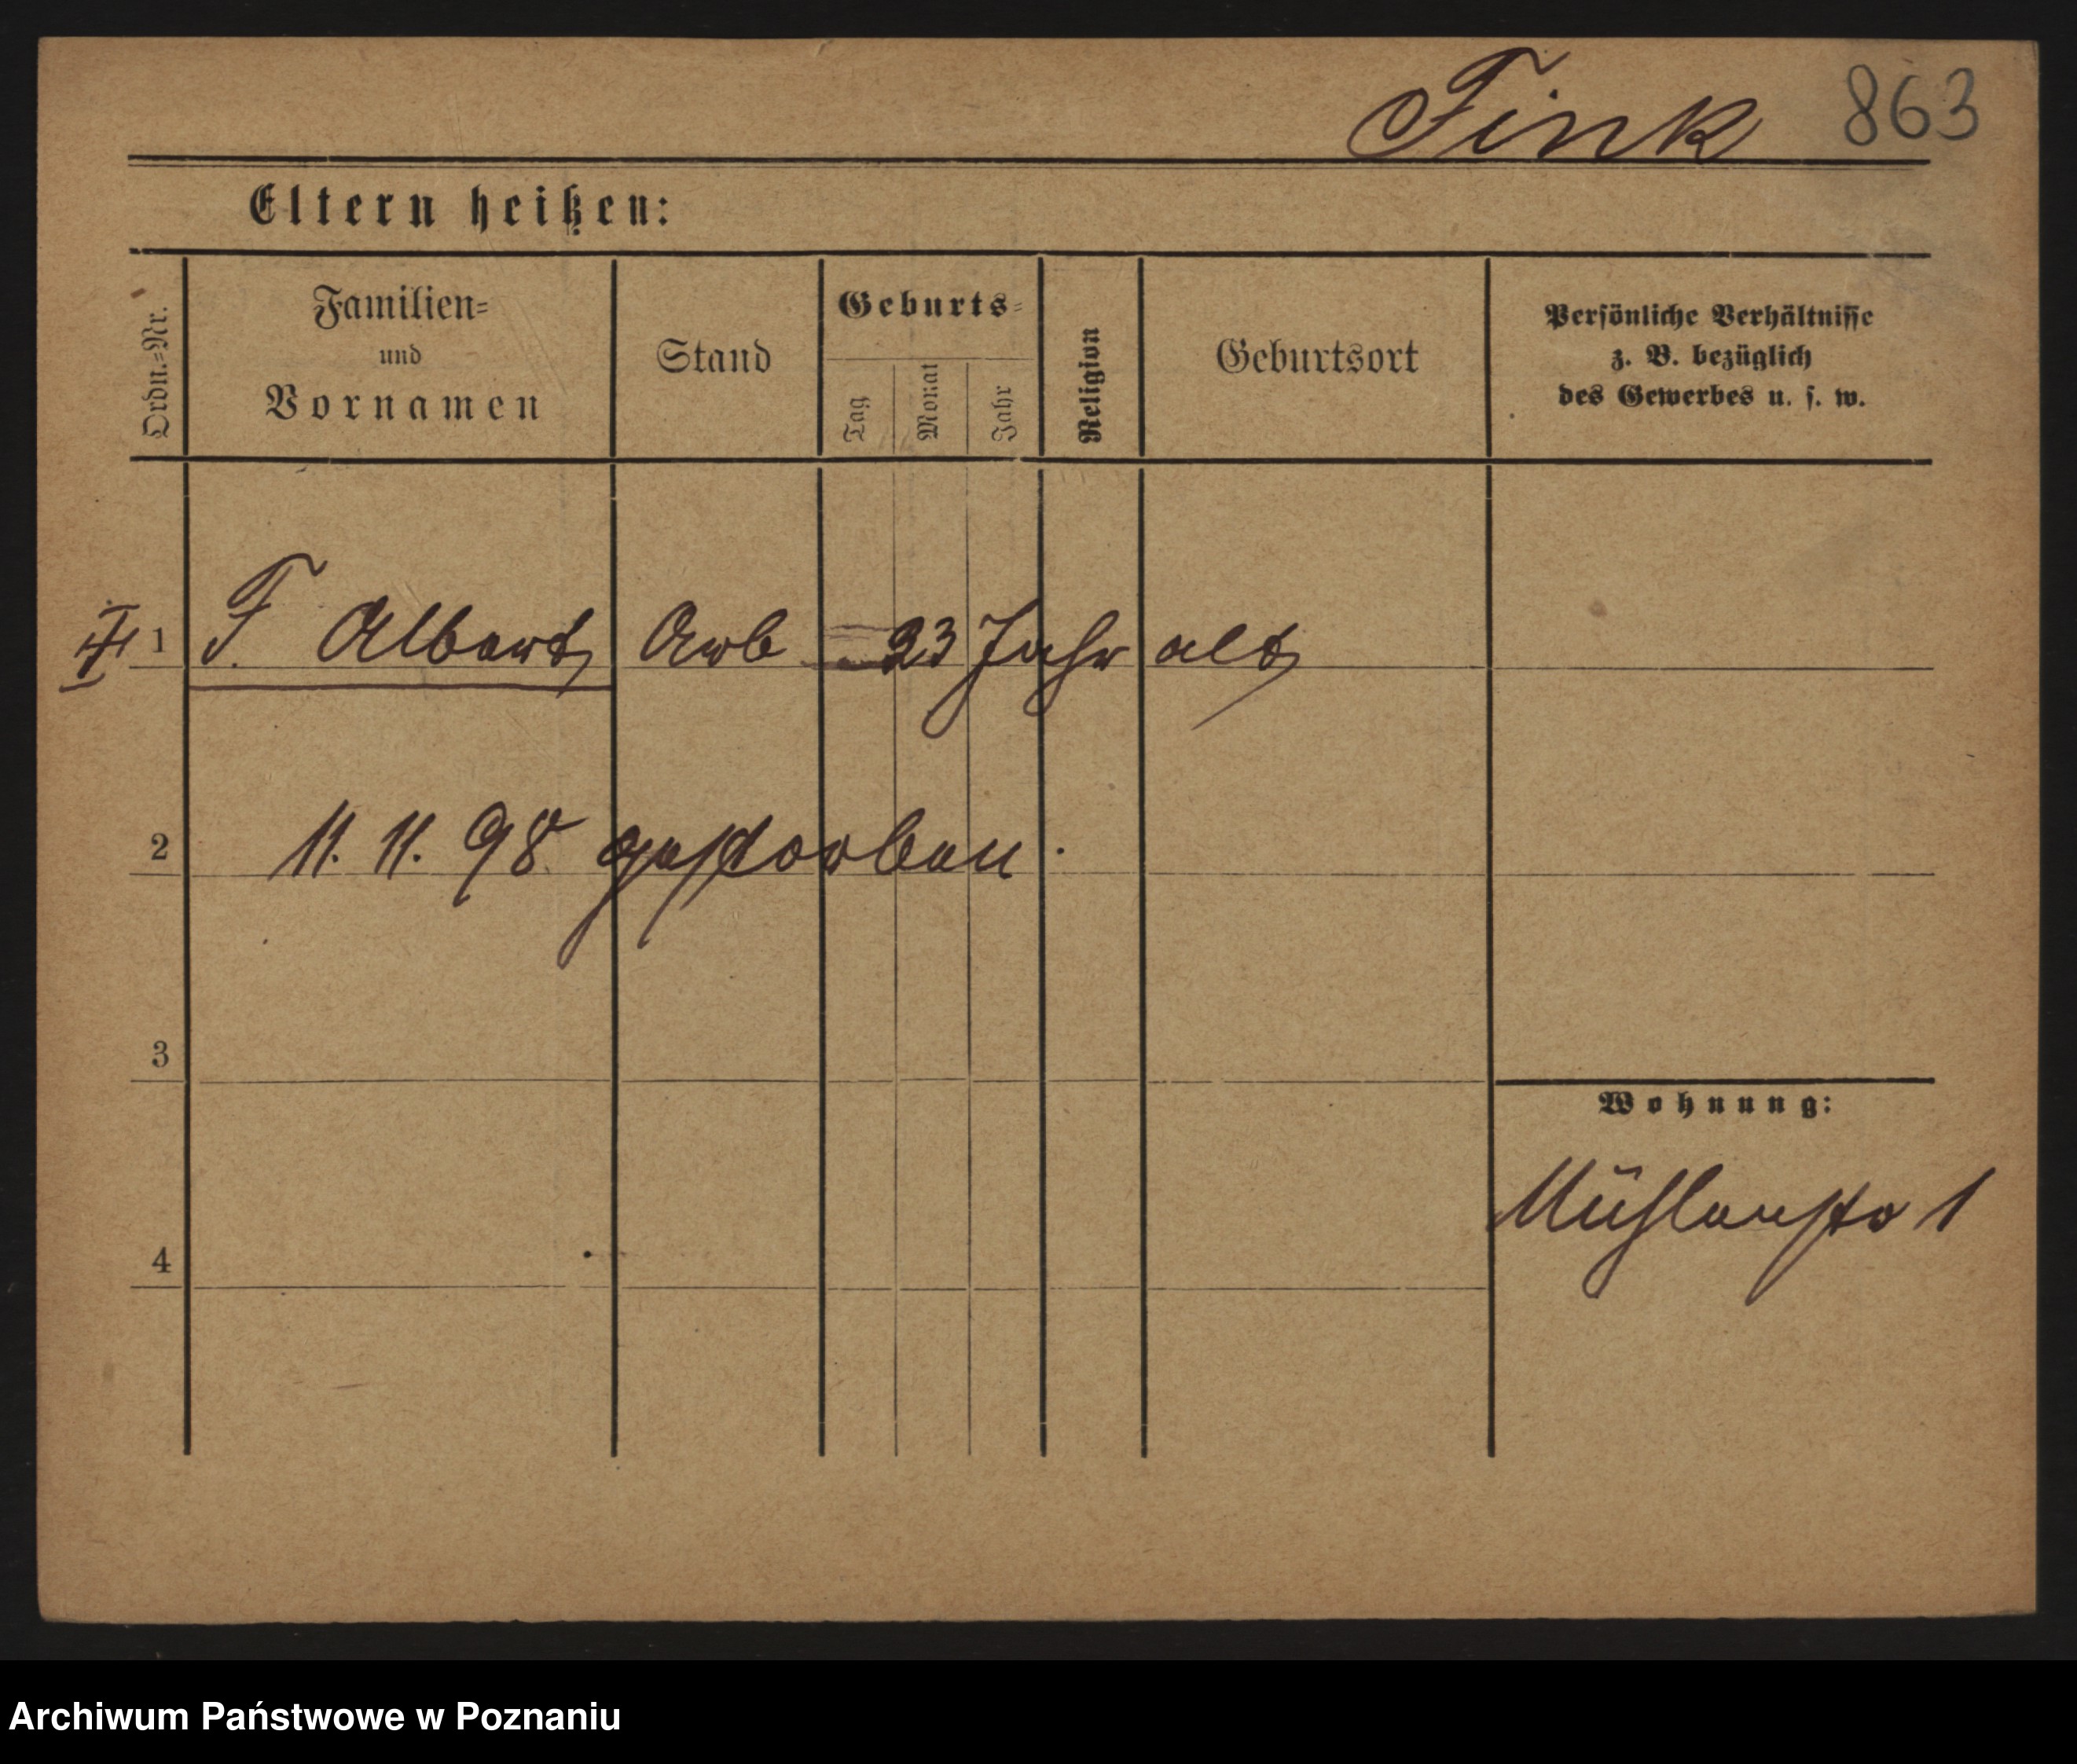 Fink 863
Eltern heißen:
Ordn.=Nr.
Familien=
und
Vornamen
Stand
Geburts=
Tag
Monat
Jahr
Religion
Geburtsort
Persönliche Verhältnisse
z. B. bezüglich
des Gewerbes u. s. w.
1 F. Albert Arb 23 Jahr alt
2 11. 11. 98 gestorben.
3
Wohnung:
Mühlenstr 1
4
Archiwum Państwowe w Poznaniu